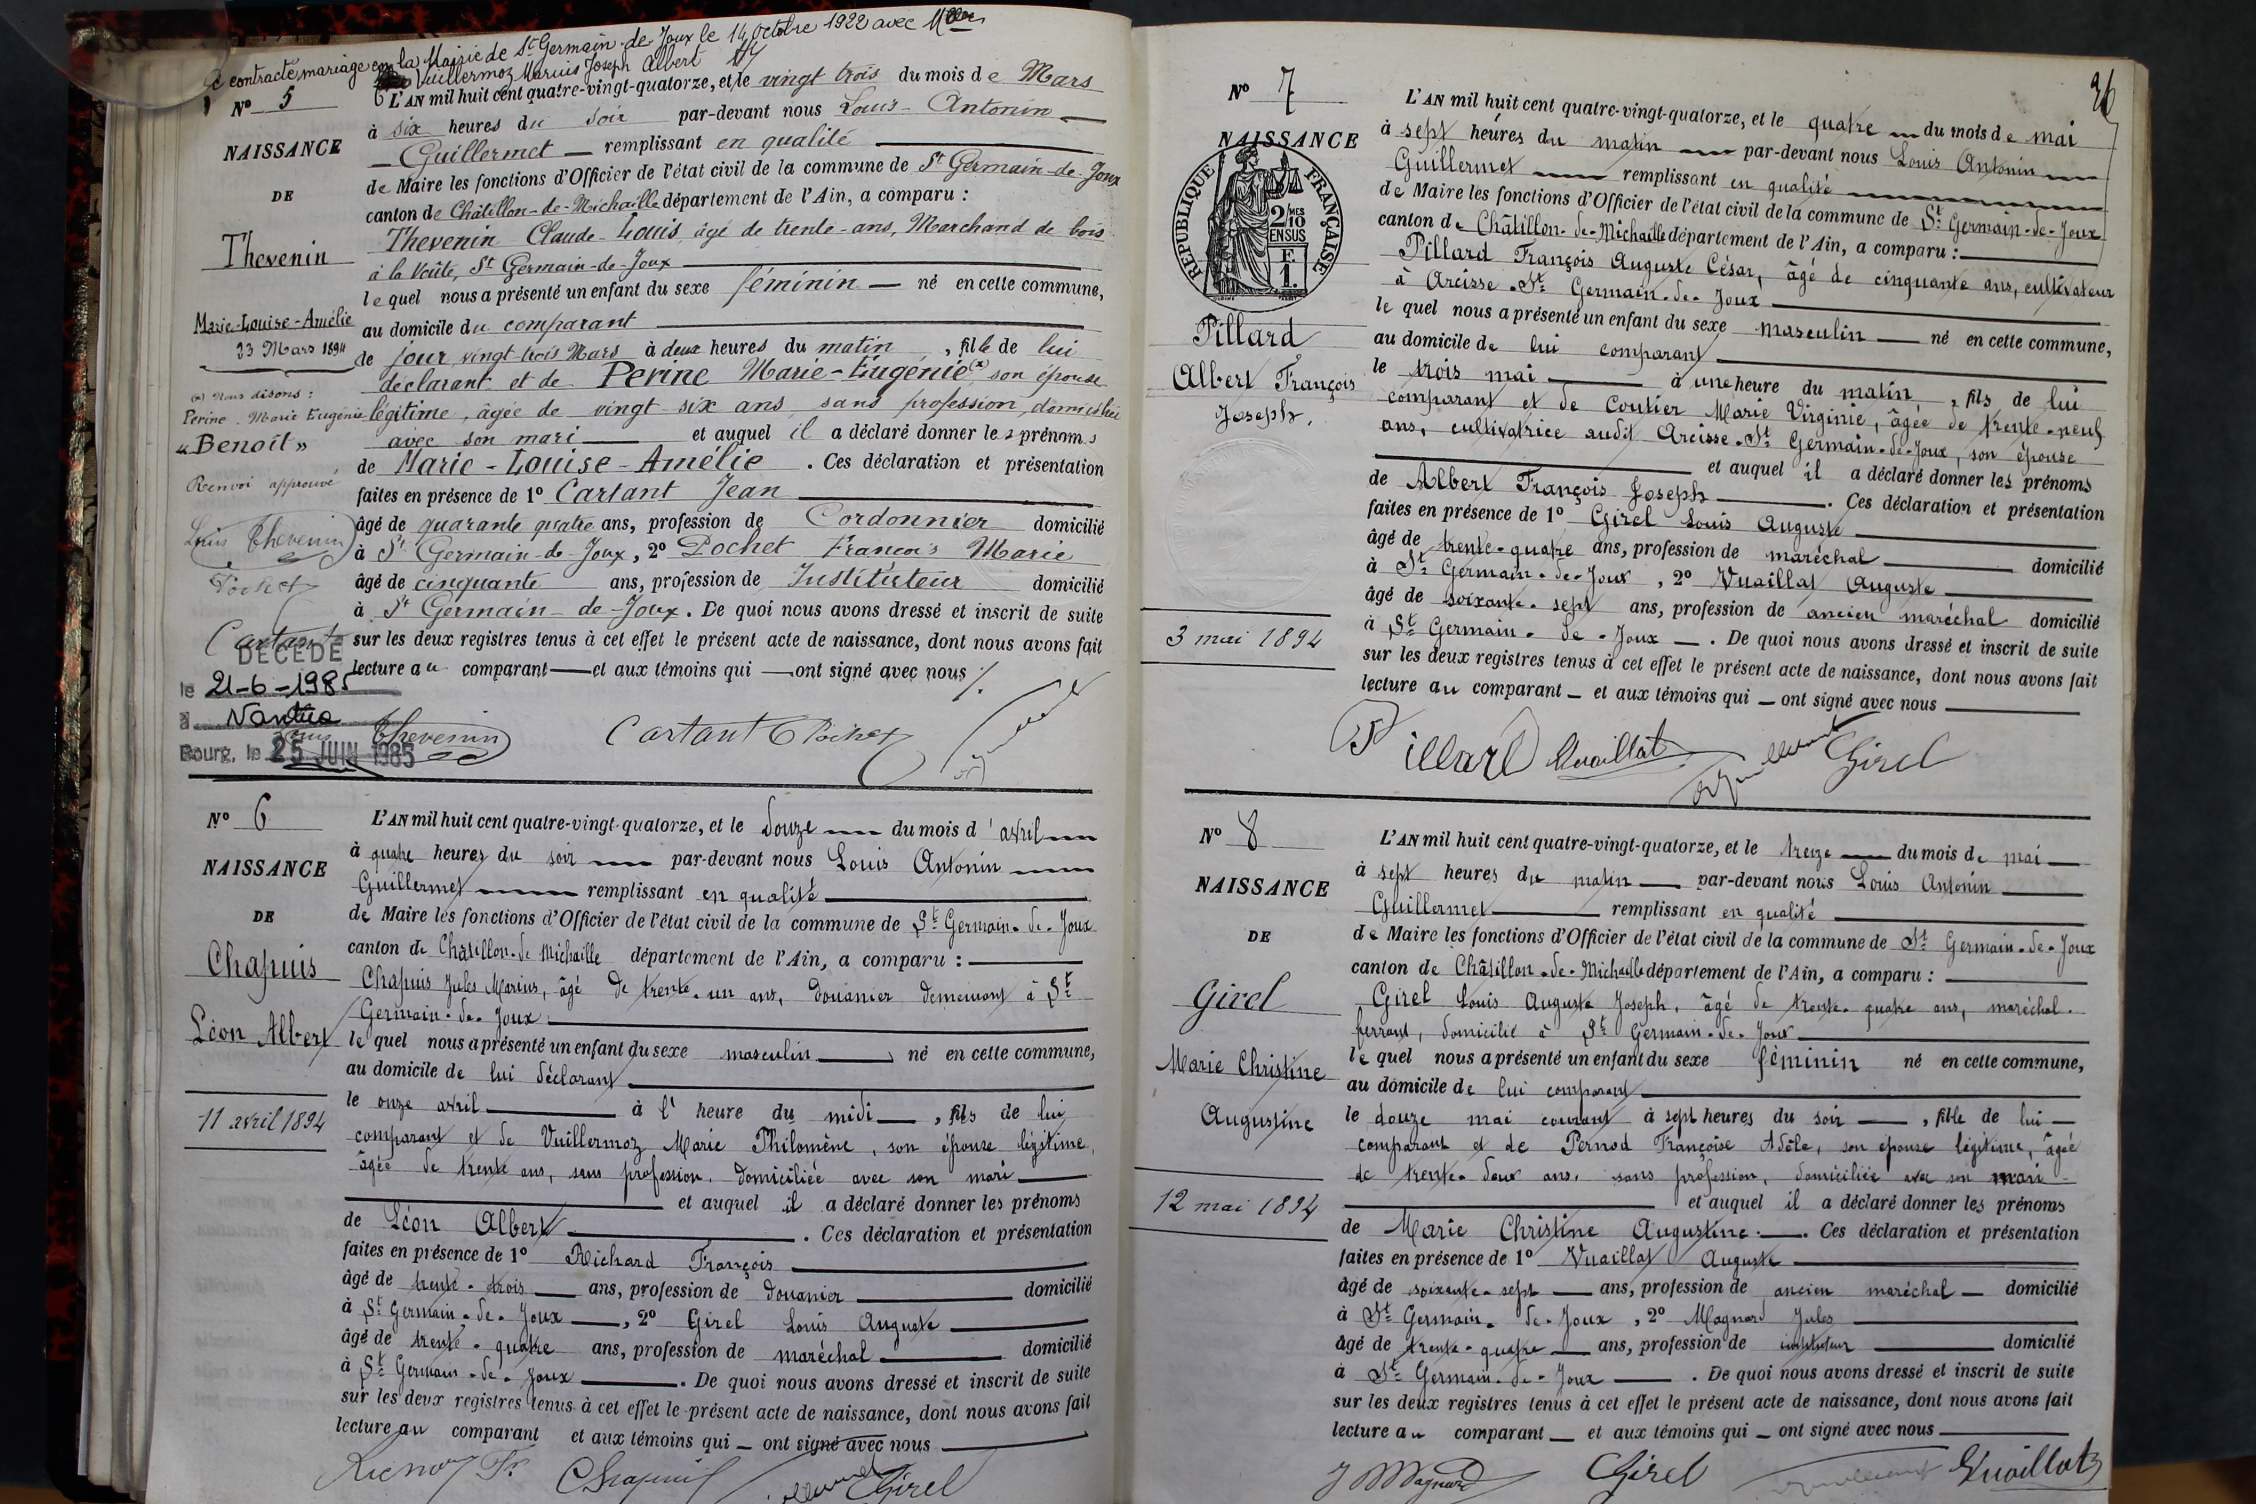 a contracté mariage en la Mairie de St Germain-de-Joux le 14 Octobre 1922 avec
Vuillermoz Marius Joseph Albert
N° 5
NAISSANCE
DE
Thevenin
Marie-Louise-Amélie
23 Mars 1894
(x) Nous disons :
Perine Marie Eugénie
« Benoît »
Renvoi approuvé
Louis Thevenin
Pochet
Cartant
DÉCÉDÉ
le 21-6-1985
à Nantua
Bourg, le 25 JUIN 1985
L'AN mil huit cent quatre-vingt-quatorze, et le vingt trois du mois de Mars
à six heures du soir par-devant nous Louis-Antonin
Guillermet remplissant en qualité
de Maire les fonctions d'Officier de l'état civil de la commune de St Germain-de-Joux
canton de Châtillon-de-Michaille département de l'Ain, a comparu :
Thevenin Claude-Louis, âgé de trente-ans, Marchand de bois
à la Voûte, St Germain-de-Joux
lequel nous a présenté un enfant du sexe féminin né en cette commune,
au domicile du comparant
de jour vingt-trois Mars à deux heures du matin, fille de lui
déclarant et de Perine Marie-Eugénie (x) son épouse
légitime, âgée de vingt-six ans, sans profession, domiciliée
avec son mari et auquel il a déclaré donner les prénoms
de Marie-Louise-Amélie. Ces déclaration et présentation
faites en présence de 1° Cartant Jean
âgé de quarante quatre ans, profession de Cordonnier domicilié
à St Germain-de-Joux, 2° Pochet François Marie
âgé de cinquante ans, profession de Instituteur domicilié
à St Germain-de-Joux. De quoi nous avons dressé et inscrit de suite
sur les deux registres tenus à cet effet le présent acte de naissance, dont nous avons fait
lecture au comparant et aux témoins qui ont signé avec nous
Louis Thevenin Cartant Pochet
N° 6
NAISSANCE
DE
Chapuis
Léon Albert
11 avril 1894
L'AN mil huit cent quatre-vingt-quatorze, et le douze du mois d'avril
à quatre heures du soir par-devant nous Louis Antonin
Guillermet remplissant en qualité
de Maire les fonctions d'Officier de l'état civil de la commune de St Germain-de-Joux
canton de Chatillon-de-Michaille département de l'Ain, a comparu :
Chapuis Jules Marius, âgé de trente-un ans, douanier demeurant à St
Germain-de-Joux
lequel nous a présenté un enfant du sexe masculin né en cette commune,
au domicile de lui déclarant
le onze avril à l'heure du midi, fils de lui
comparant et de Vuillermoz Marie Philomène, son épouse légitime,
âgée de trente ans, sans profession, domiciliée avec son mari
et auquel il a déclaré donner les prénoms
de Léon Albert. Ces déclaration et présentation
faites en présence de 1° Richard François
âgé de trente-trois ans, profession de douanier domicilié
à St Germain-de-Joux, 2° Girel Louis Auguste
âgé de trente-quatre ans, profession de maréchal domicilié
à St Germain-de-Joux. De quoi nous avons dressé et inscrit de suite
sur les deux registres tenus à cet effet le présent acte de naissance, dont nous avons fait
lecture au comparant et aux témoins qui ont signé avec nous
Chapuis Girel
36
N° 7
NAISSANCE
RÉPUBLIQUE FRANÇAISE
2/10 MES
EN SUS
F
1.
Pillard
Albert François
Joseph.
3 mai 1894
L'AN mil huit cent quatre-vingt-quatorze, et le quatre du mois de mai
à sept heures du matin par-devant nous Louis Antonin
Guillermet remplissant en qualité
de Maire les fonctions d'Officier de l'état civil de la commune de St Germain-de-Joux
canton de Châtillon-de-Michaille département de l'Ain, a comparu :
Pillard François Auguste César, âgé de cinquante ans, cultivateur
à Arcisse St Germain-de-Joux
lequel nous a présenté un enfant du sexe masculin né en cette commune,
au domicile de lui comparant
le trois mai à une heure du matin, fils de lui
comparant et de Coutier Marie Virginie, âgée de trente-neuf
ans, cultivatrice audit Arcisse St Germain-de-Joux, son épouse
et auquel il a déclaré donner les prénoms
de Albert François Joseph. Ces déclaration et présentation
faites en présence de 1° Girel Louis Auguste
âgé de trente-quatre ans, profession de maréchal domicilié
à St Germain-de-Joux, 2° Vuaillat Auguste
âgé de soixante-sept ans, profession de ancien maréchal domicilié
à St Germain-de-Joux. De quoi nous avons dressé et inscrit de suite
sur les deux registres tenus à cet effet le présent acte de naissance, dont nous avons fait
lecture au comparant et aux témoins qui ont signé avec nous
Pillard Vuaillat Guillermet Girel
N° 8
NAISSANCE
DE
Girel
Marie Christine
Augustine
12 mai 1894
L'AN mil huit cent quatre-vingt-quatorze, et le treize du mois de mai
à sept heures du matin par-devant nous Louis Antonin
Guillermet remplissant en qualité
de Maire les fonctions d'Officier de l'état civil de la commune de St Germain-de-Joux
canton de Châtillon-de-Michaille département de l'Ain, a comparu :
Girel Louis Auguste Joseph, âgé de trente-quatre ans, maréchal-
ferrant, domicilié à St Germain-de-Joux
lequel nous a présenté un enfant du sexe féminin né en cette commune,
au domicile de lui comparant
le douze mai courant à sept heures du soir, fille de lui
comparant et de Pernod Françoise Adèle, son épouse légitime, âgée
de trente-deux ans, sans profession, domiciliée avec son mari
et auquel il a déclaré donner les prénoms
de Marie Christine Augustine. Ces déclaration et présentation
faites en présence de 1° Vuaillat Auguste
âgé de soixante-sept ans, profession de ancien maréchal domicilié
à St Germain-de-Joux, 2° Magnard Jules
âgé de trente-quatre ans, profession de instituteur domicilié
à St Germain-de-Joux. De quoi nous avons dressé et inscrit de suite
sur les deux registres tenus à cet effet le présent acte de naissance, dont nous avons fait
lecture au comparant et aux témoins qui ont signé avec nous
J Magnard Girel Guillermet Vuaillat